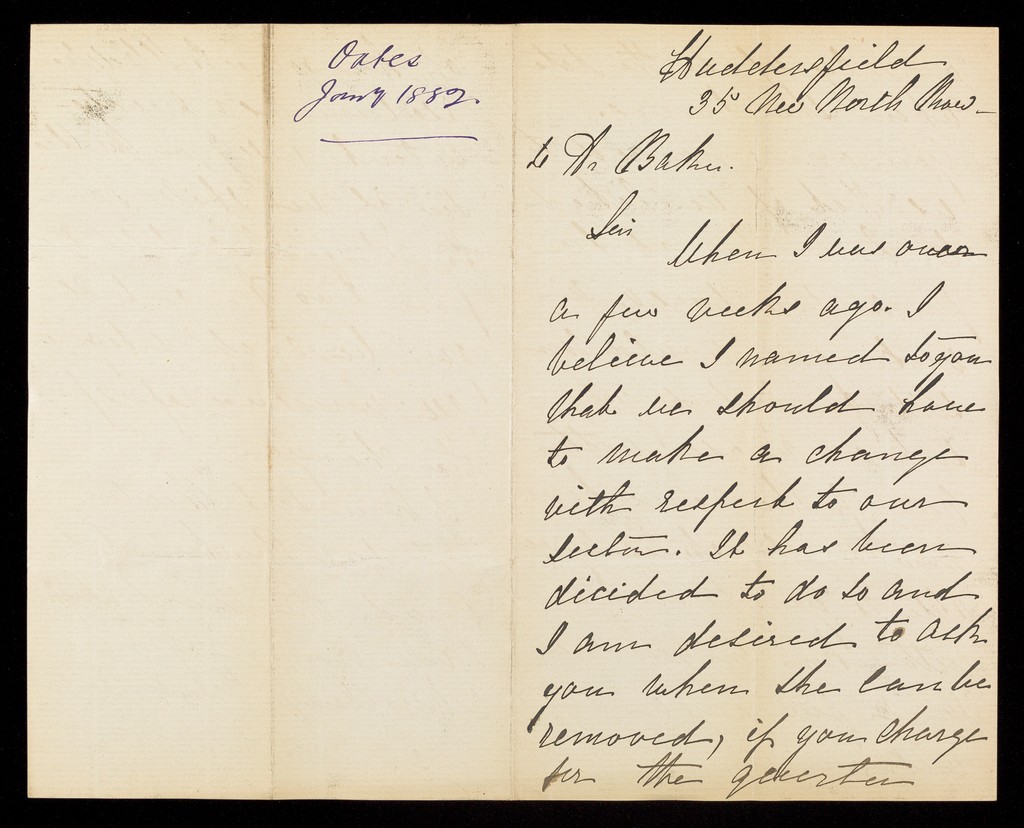 Oates
Jany 1882
Huddersfield
35 New North Row
to Dr Baker.
Sir
When I was over
a few weeks ago. I
believe I named to you
that we should have
to make a change
with respect to our
sister. It has been
dicided to do so and
I am desired to ask
you when she can be
removed, if you charge
for the quarter